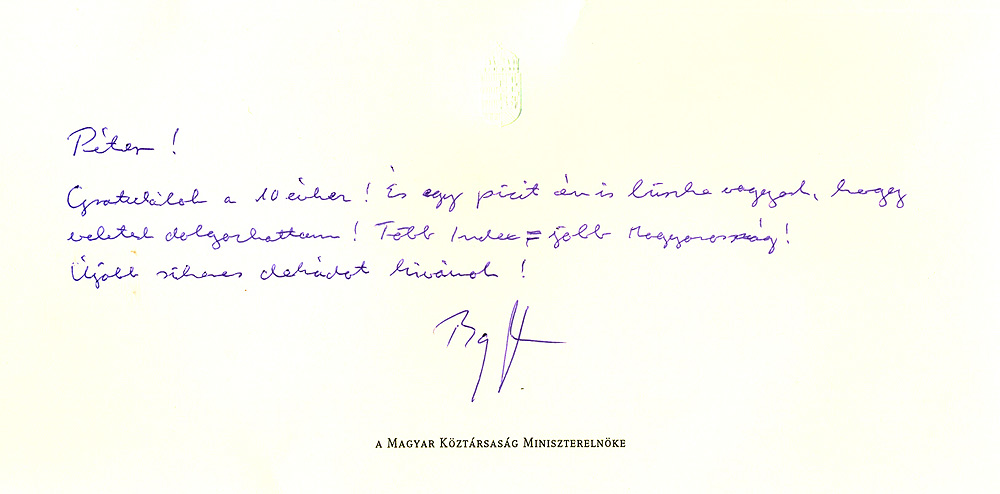 Péter!
Gratulálok a 10 évhez! És egy picit én is büszke vagyok, hogy
veled dolgozhattam! Több Index = jobb Magyarország!
Újabb sikeres dekádot kívánok!
A MAGYAR KÖZTÁRSASÁG MINISZTERELNÖKE